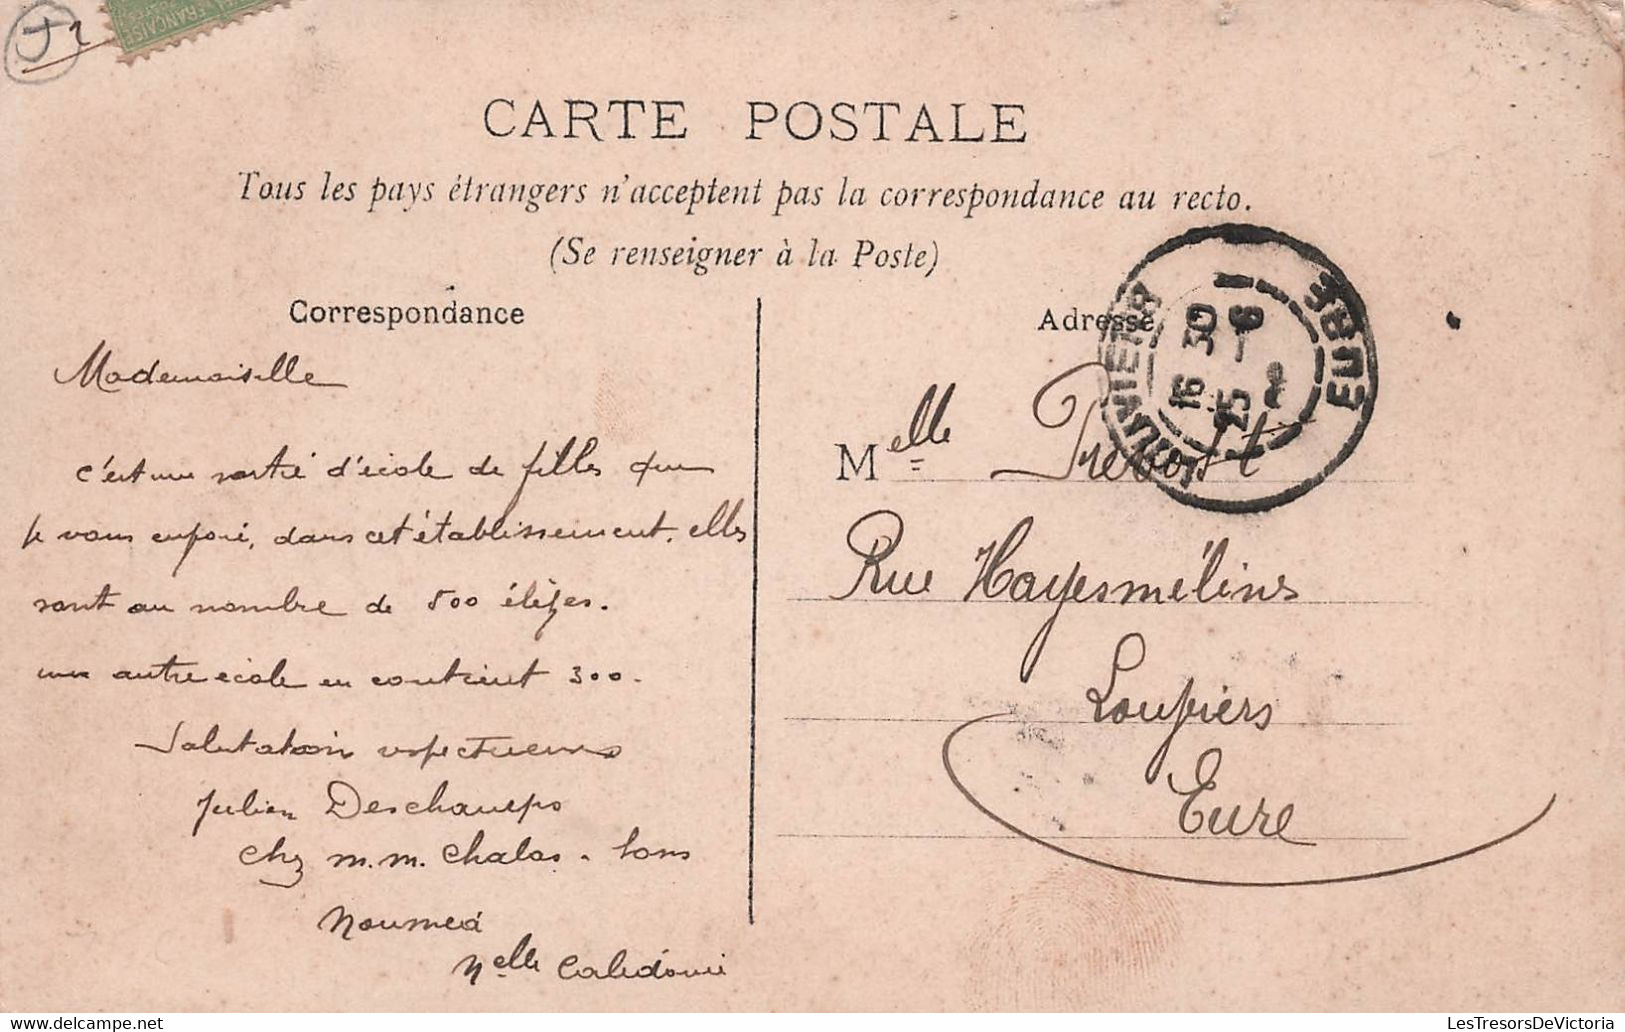 FRANÇAISE
CARTE POSTALE
Tous les pays étrangers n'acceptent pas la correspondance au recto.
(Se renseigner à la Poste)
Correspondance
Mademoiselle
c'est une sortie d'école de filles que
je vous envoie, dans cet établissement, elles
sont au nombre de 500 élèves.
une autre école en contient 300.
Salutation respectueuses
Julien Deschamps
chez m.m. Chalas
Nouméa
Nelle Calédonie
Adresse
LOUVIERS
EURE
16 30
25 - 6
Melle Prevost
Rue Hayesmélines
Loupiers
Eure
LesTresorsDeVictoria